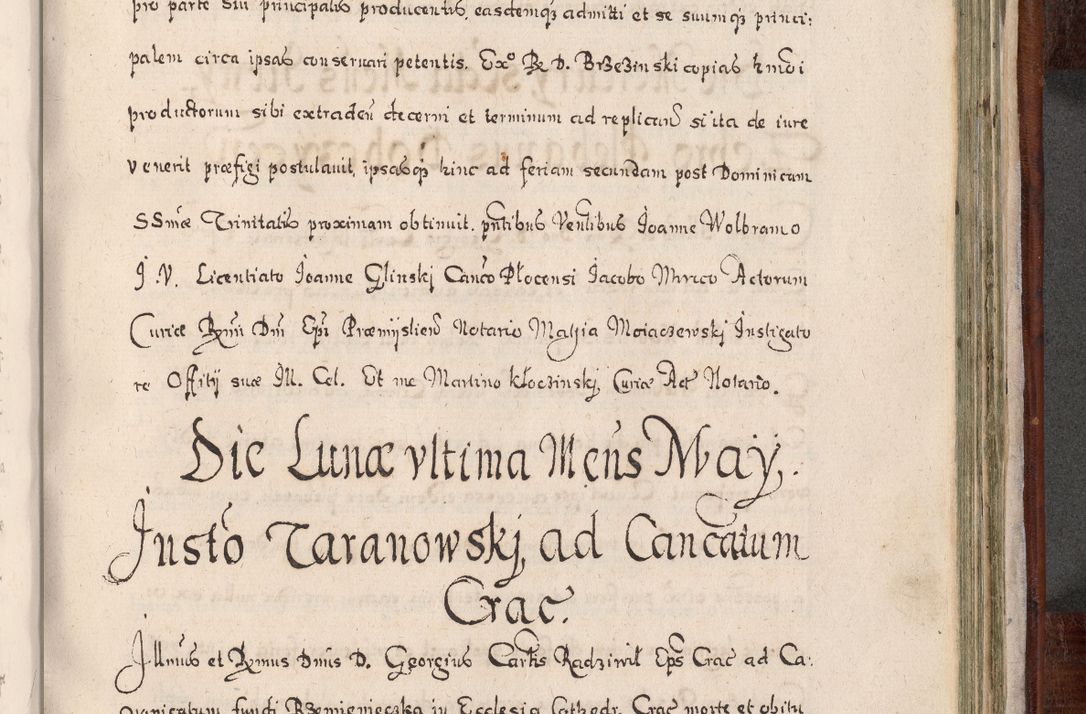 pro parte sui principalis producentis, easdemqꝫ admitti et se suumqꝫ princi:
palem circa ipsas conseruari petentis. Exº R. D. Brzezinski copias hmōi
productorum sibi extradeñ decerni et terminum ad replicanđ si ita de iure
venerit præfigi postulavit, ipsasqꝫ hinc ad feriam secundam post Dominicam
SSmæ Trinitatis proximam obtinuit. pñtibus Ventibus Joanne Wolbramo
J. V. Licentiato Joanne Glinskj Canco Płocensi Jacobo Marico Actorum
Curiæ Rymi Dni Epi Præmijslien Notario Mathia Moiaczewskj Instigato
re Offitij suæ Ill. Cel. Et me Martino Kłoczinskj, Curiæ Act Notario.
Die Lunæ vltima Mens̃ Maÿ.
Justo Taranowskj, ad Cancatum
Crac.
Illmus et Rymus Dnis D. Georgius Cartis Radziwil Eps Crac ad Ca:
onicatum fundi Rzemienieczka in Ecclesia Cathedr. Crac morte et obitu